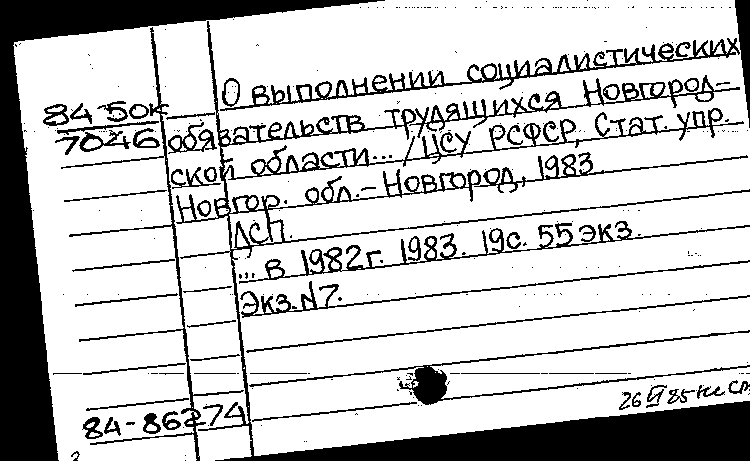 84-5ок
7046
О выполнении социалистических
обязательств трудящихся Новгород-
ской области... / ЦСУ РСФСР, Стат. упр.
Новгор. обл.- Новгород, 1983.
ДСП.
... в 1982г. 1983. 19с. 55 экз.
Экз. N7.
84-86274
26 VI 85